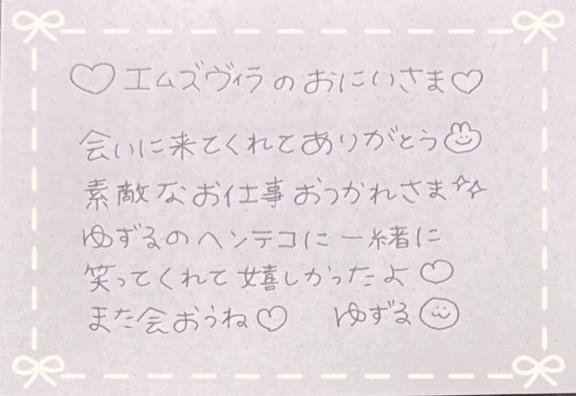 ♡エムズヴィラのおにいさま♡
会いに来てくれてありがとう
素敵なお仕事おつかれさま☆☆
ゆずるのヘンテコに一緒に
笑ってくれて嬉しかったよ♡
また会おうね♡ ゆずる